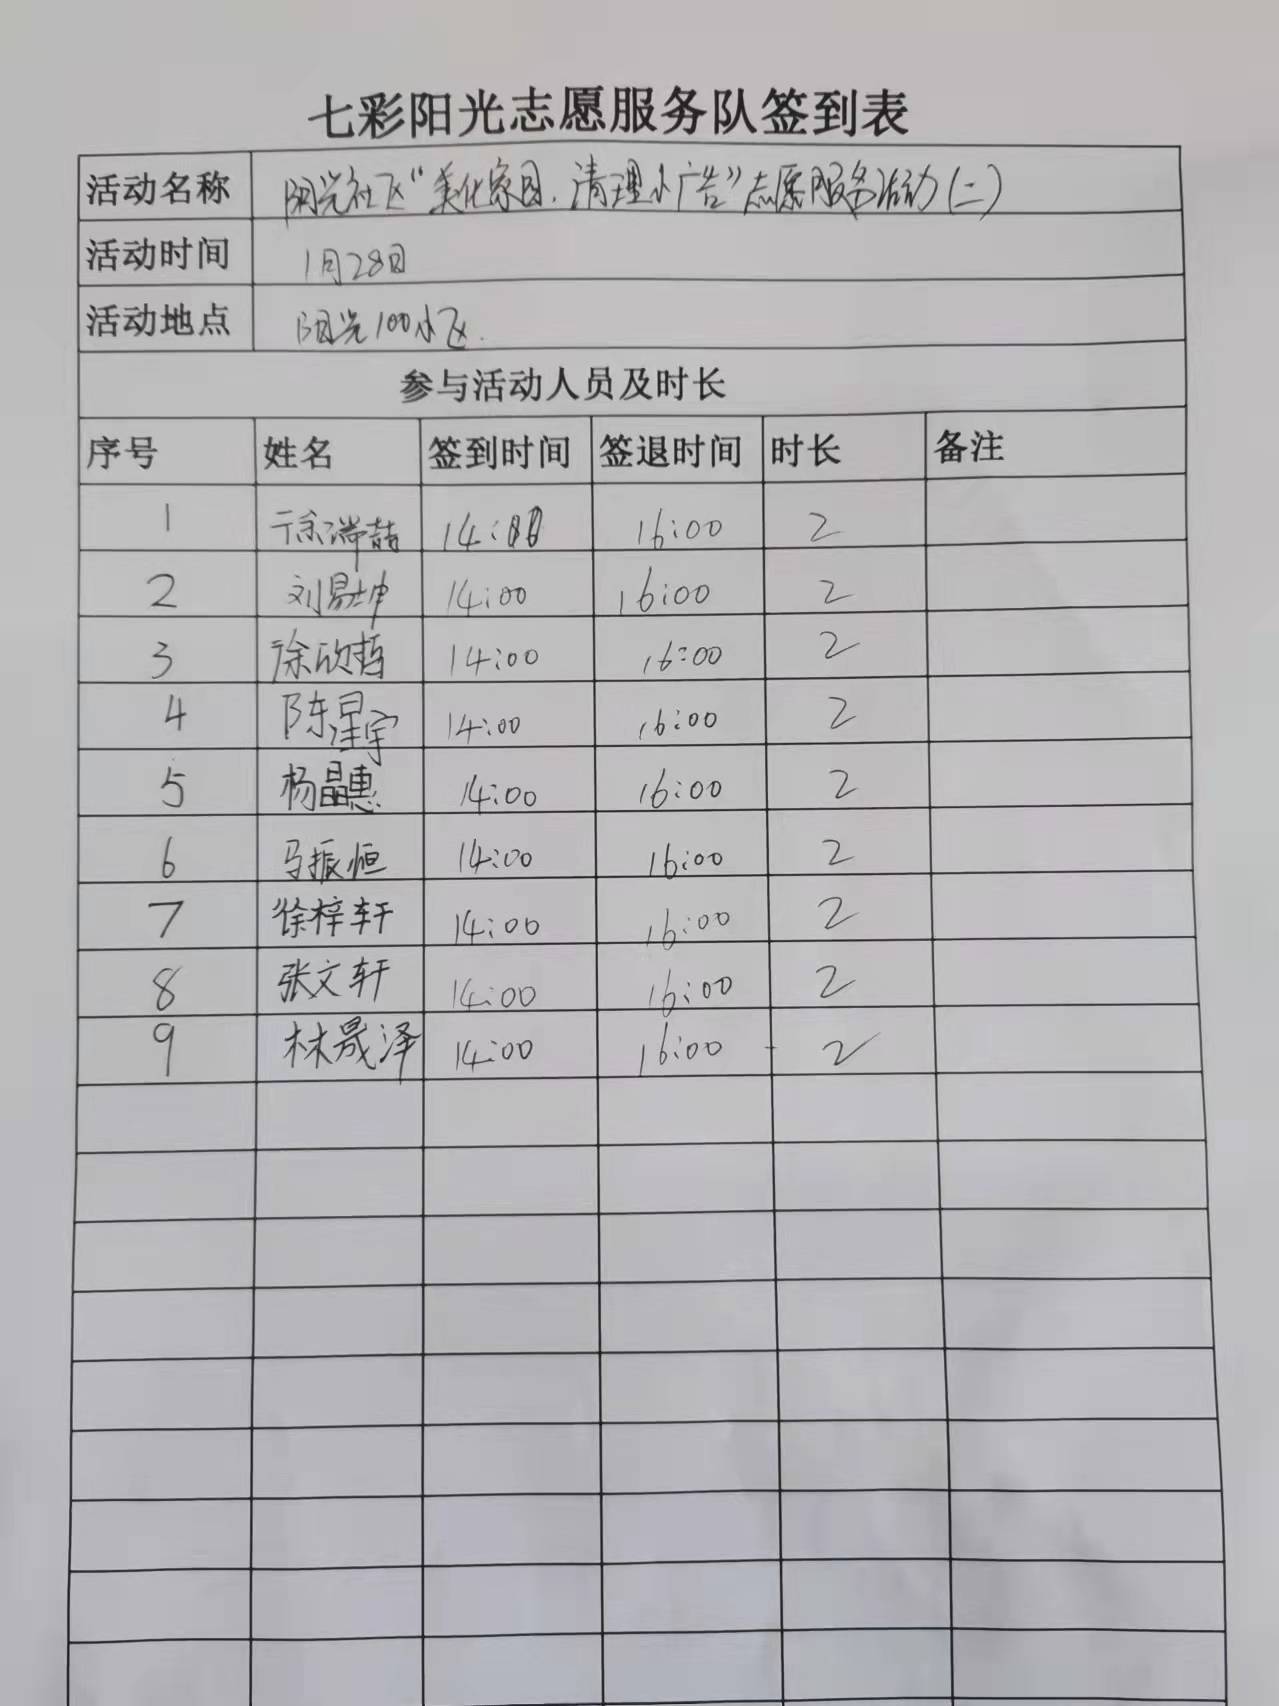 七彩阳光志愿服务队签到表
活动名称 阳光社区“美化家园.清理小广告”志愿服务活动(二)
活动时间 1月28日
活动地点 阳光100小区.
参与活动人员及时长
序号 姓名 签到时间 签退时间 时长 备注
1 徐瑞喆 14:00 16:00 2
2 刘易坤 14:00 16:00 2
3 徐欣哲 14:00 16:00 2
4 陈星宇 14:00 16:00 2
5 杨晶惠 14:00 16:00 2
6 马振恒 14:00 16:00 2
7 徐梓轩 14:00 16:00 2
8 张文轩 14:00 16:00 2
9 林晟泽 14:00 16:00 2